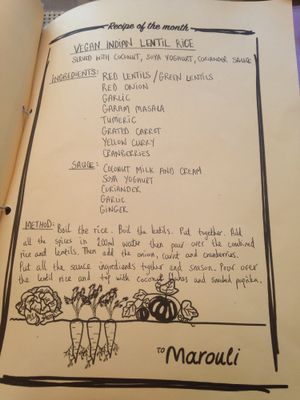 Recipe of the month
VEGAN INDIAN LENTIL RICE
SERVED WITH COCONUT, SOYA YOGHURT, CORIANDER SAUCE
INGREDIENTS: RED LENTILS/GREEN LENTILS
RED ONION
GARLIC
GARAM MASALA
TUMERIC
GRATED CARROT
YELLOW CURRY
CRANBERRIES
SAUCE: COCONUT MILK AND CREAM
SOYA YOGHURT
CORIANDER
GARLIC
GINGER
METHOD: Boil the rice. Boil the lentils. Put together. Add
all the spices in 200ml water then pour over the combined
rice and lentils. Then add the onion, carrot and cranberries.
Put all the sauce ingredients together and season. Pour over
the lentil rice and top with coconut and smoked paprika.
TO Marouli